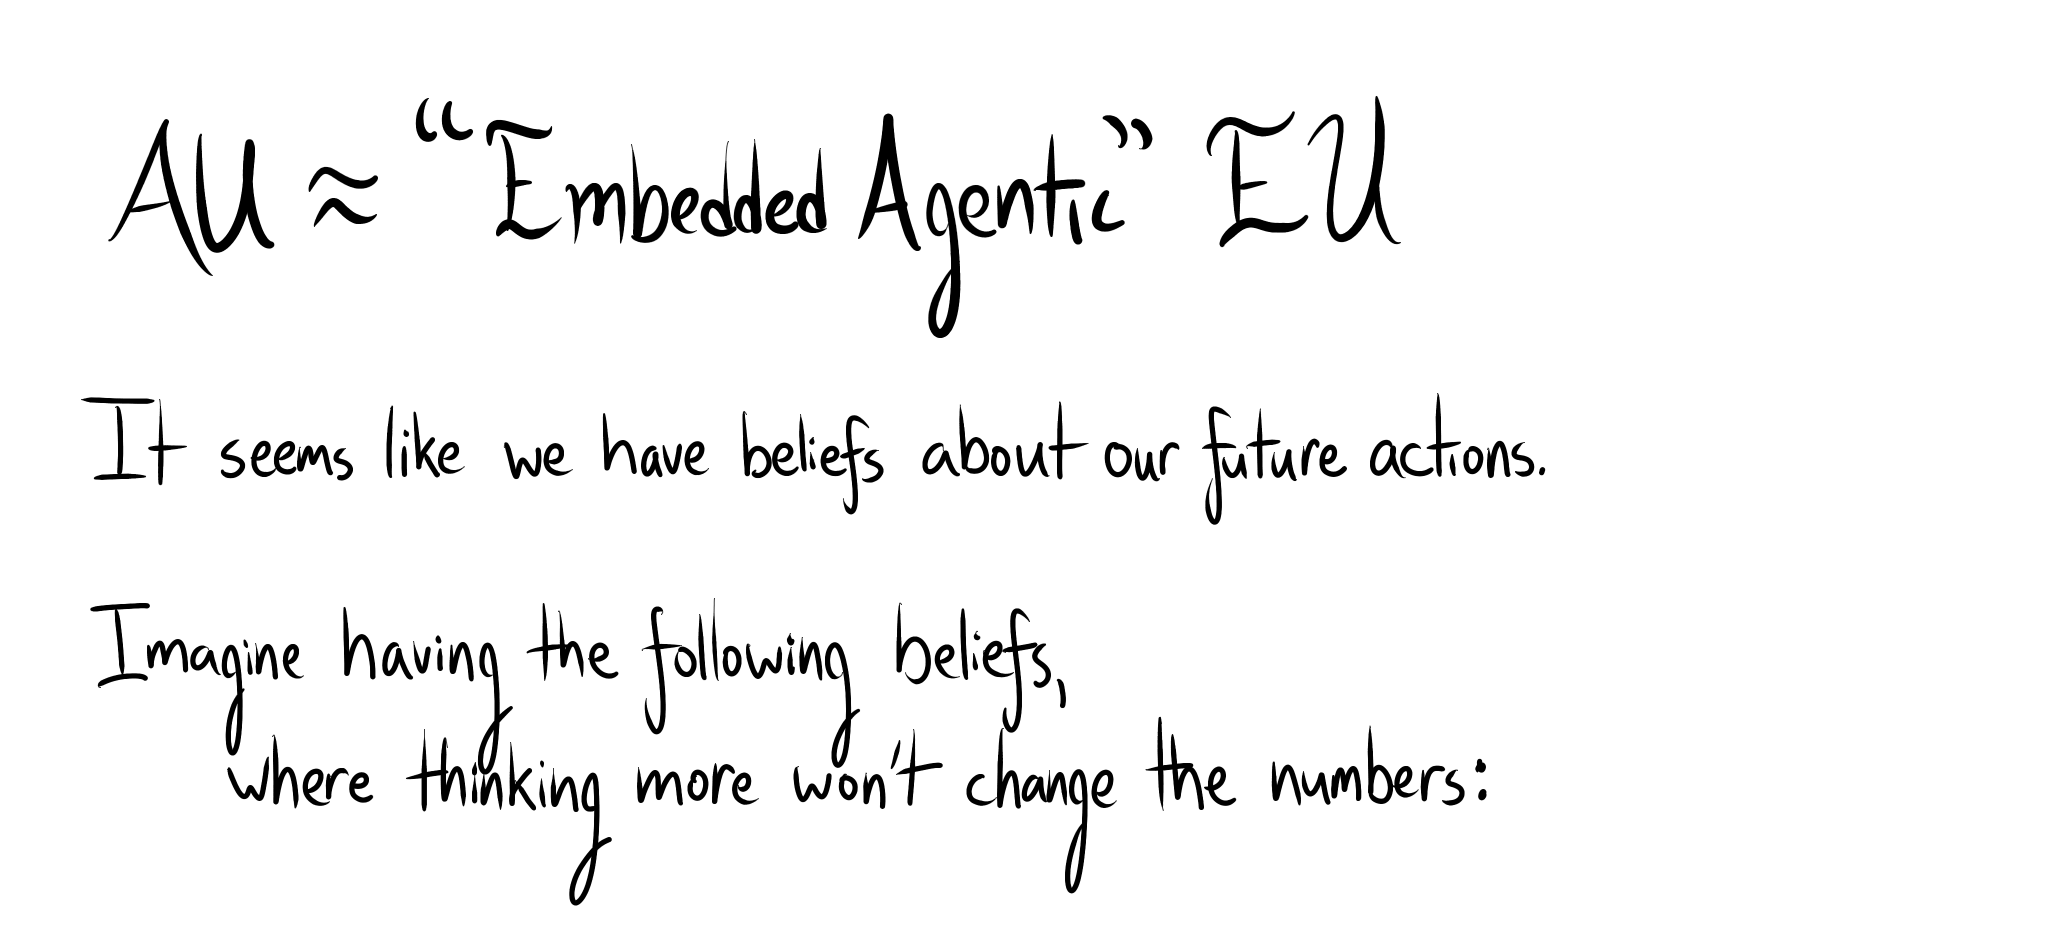 AU ≈ “Embedded Agentic” EU
It seems like we have beliefs about our future actions.
Imagine having the following beliefs,
where thinking more won't change the numbers: